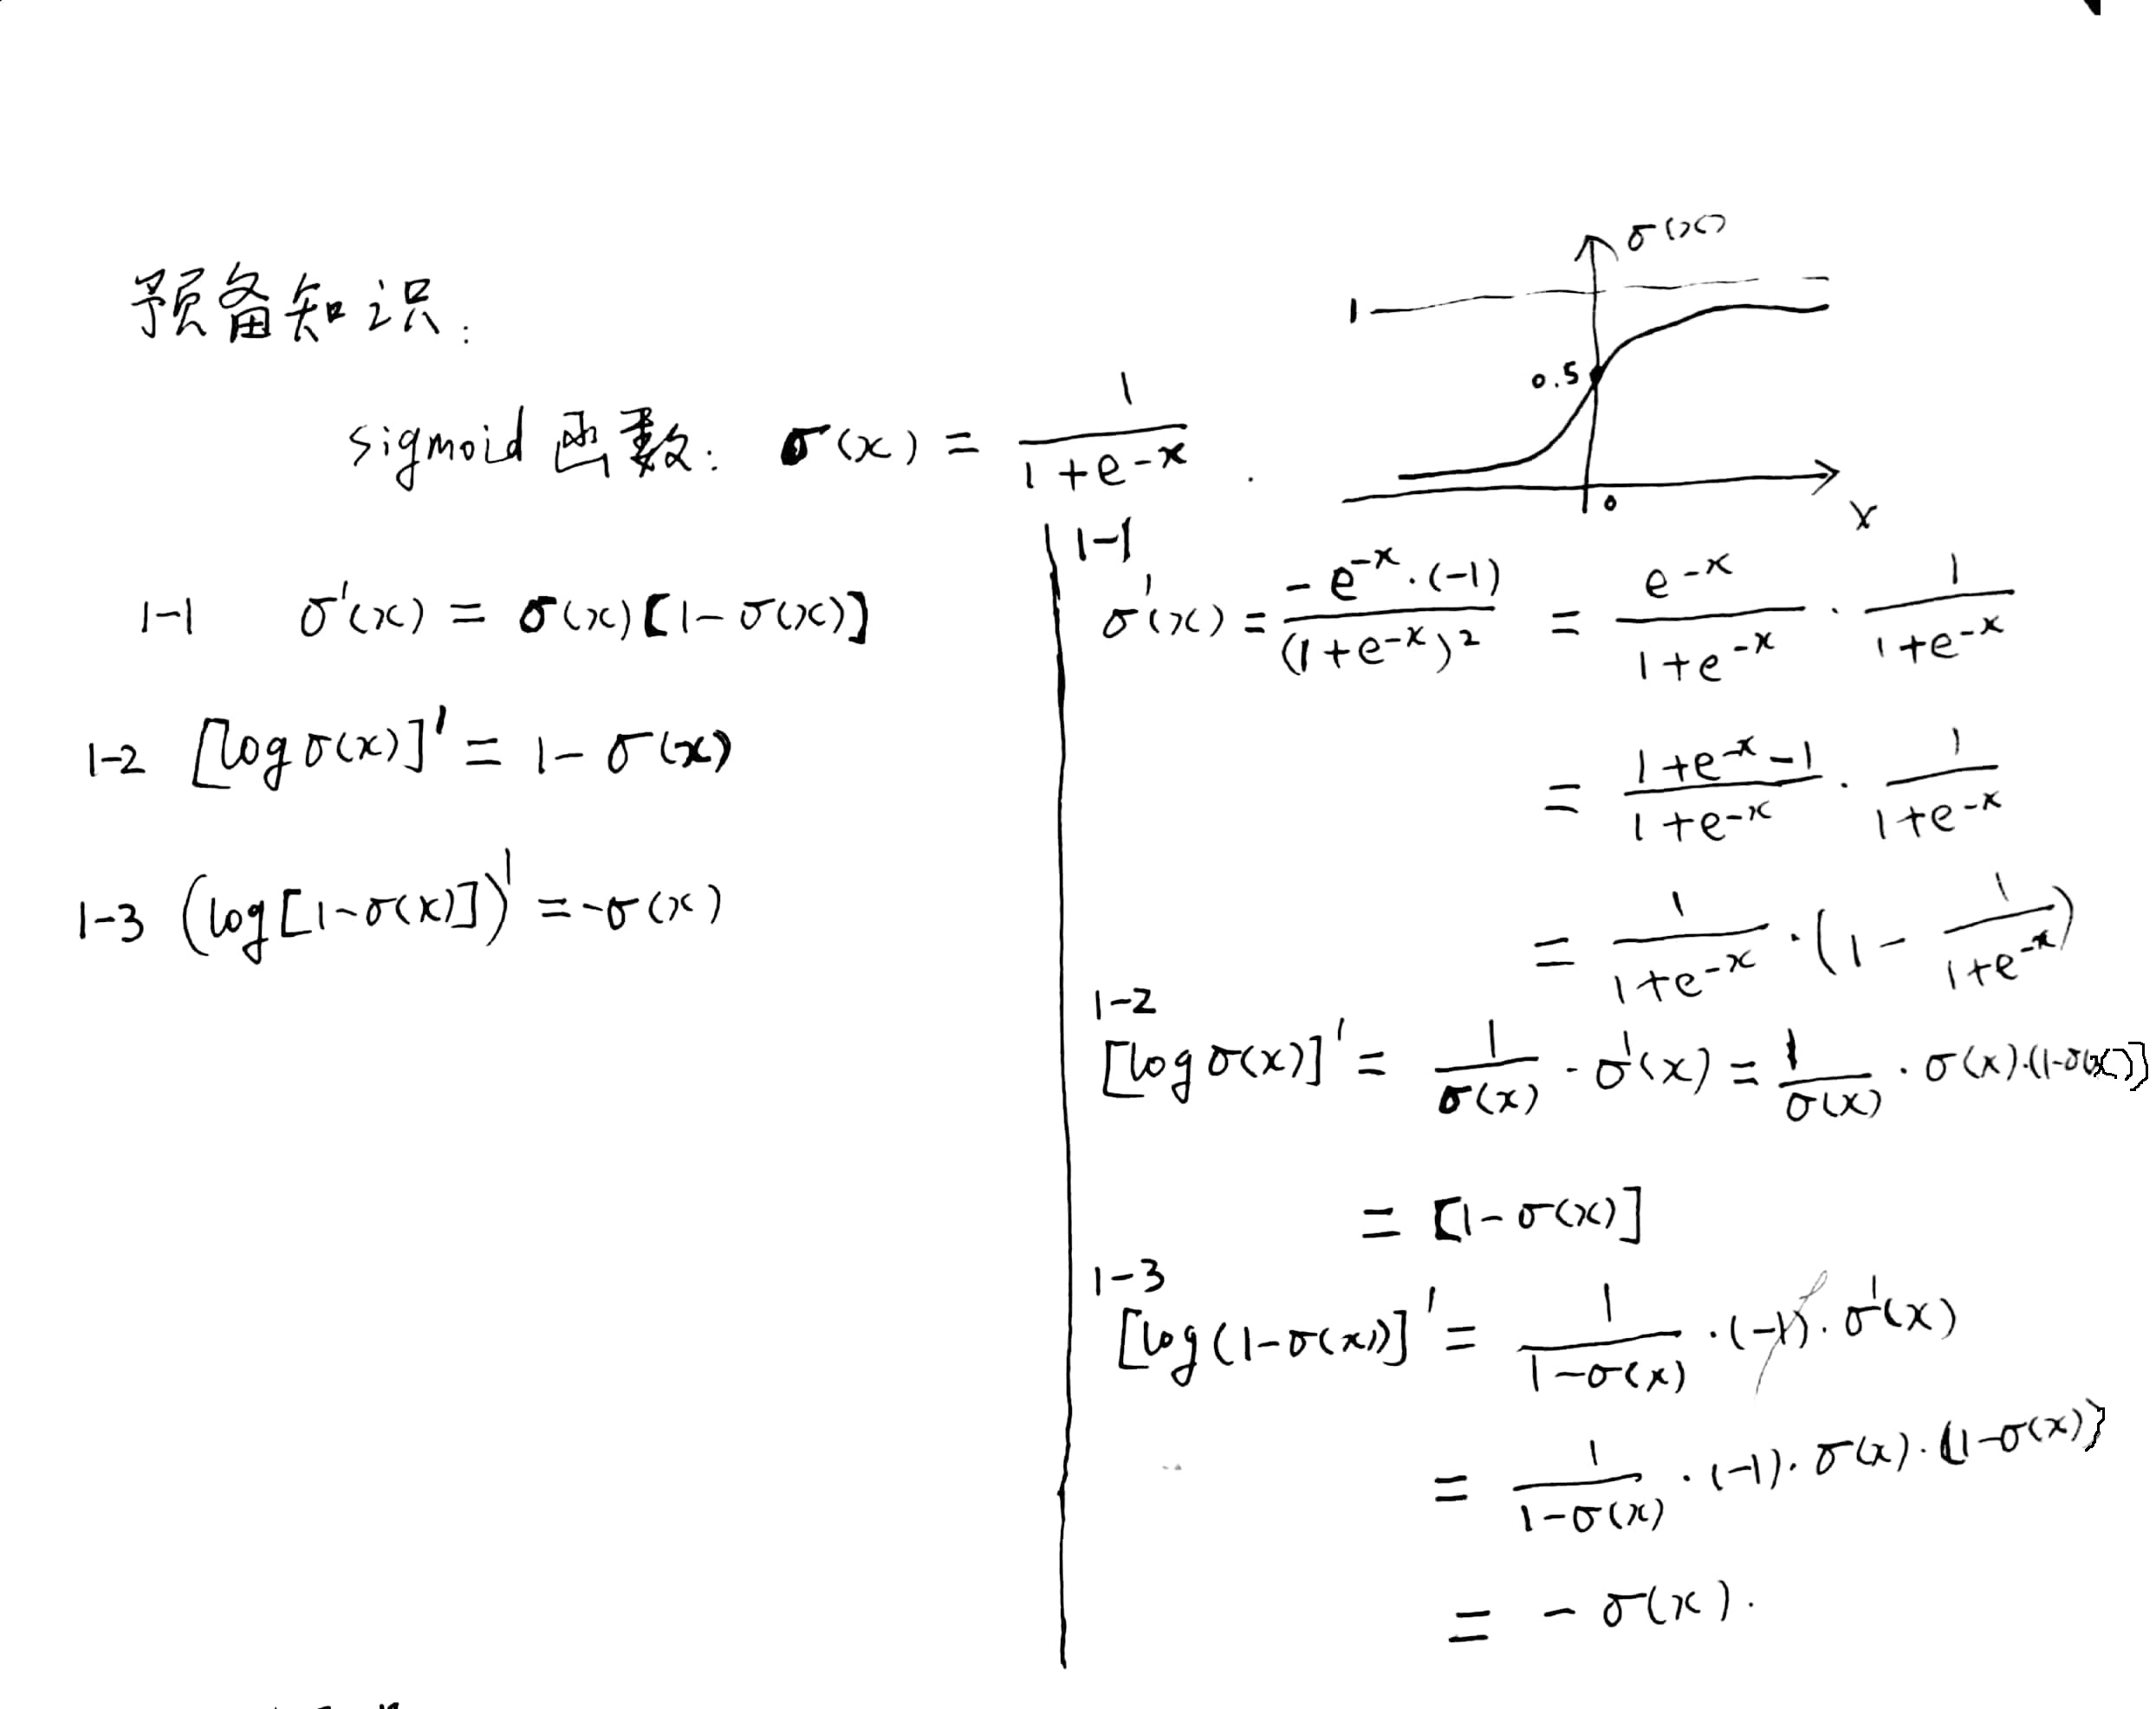 预备知识:
sigmoid 函数: σ(x) = 1/(1+e^-x) .
σ(x)
1
0.5
0
x
1-1 σ'(x) = σ(x)[1-σ(x)]
1-2 [log σ(x)]' = 1-σ(x)
1-3 (log[1-σ(x)])' = -σ(x)
1-1
σ'(x) = (-e^-x·(-1))/(1+e^-x)² = e^-x/(1+e^-x) · 1/(1+e^-x)
= (1+e^-x-1)/(1+e^-x) · 1/(1+e^-x)
= 1/(1+e^-x) · (1 - 1/(1+e^-x))
1-2
[log σ(x)]' = 1/σ(x) · σ'(x) = 1/σ(x) · σ(x)·(1-σ(x)]
= [1-σ(x)]
1-3
[log(1-σ(x))]' = 1/(1-σ(x)) ·(-1)· σ'(x)
= 1/(1-σ(x)) ·(-1)· σ(x)·[1-σ(x)]
= -σ(x).